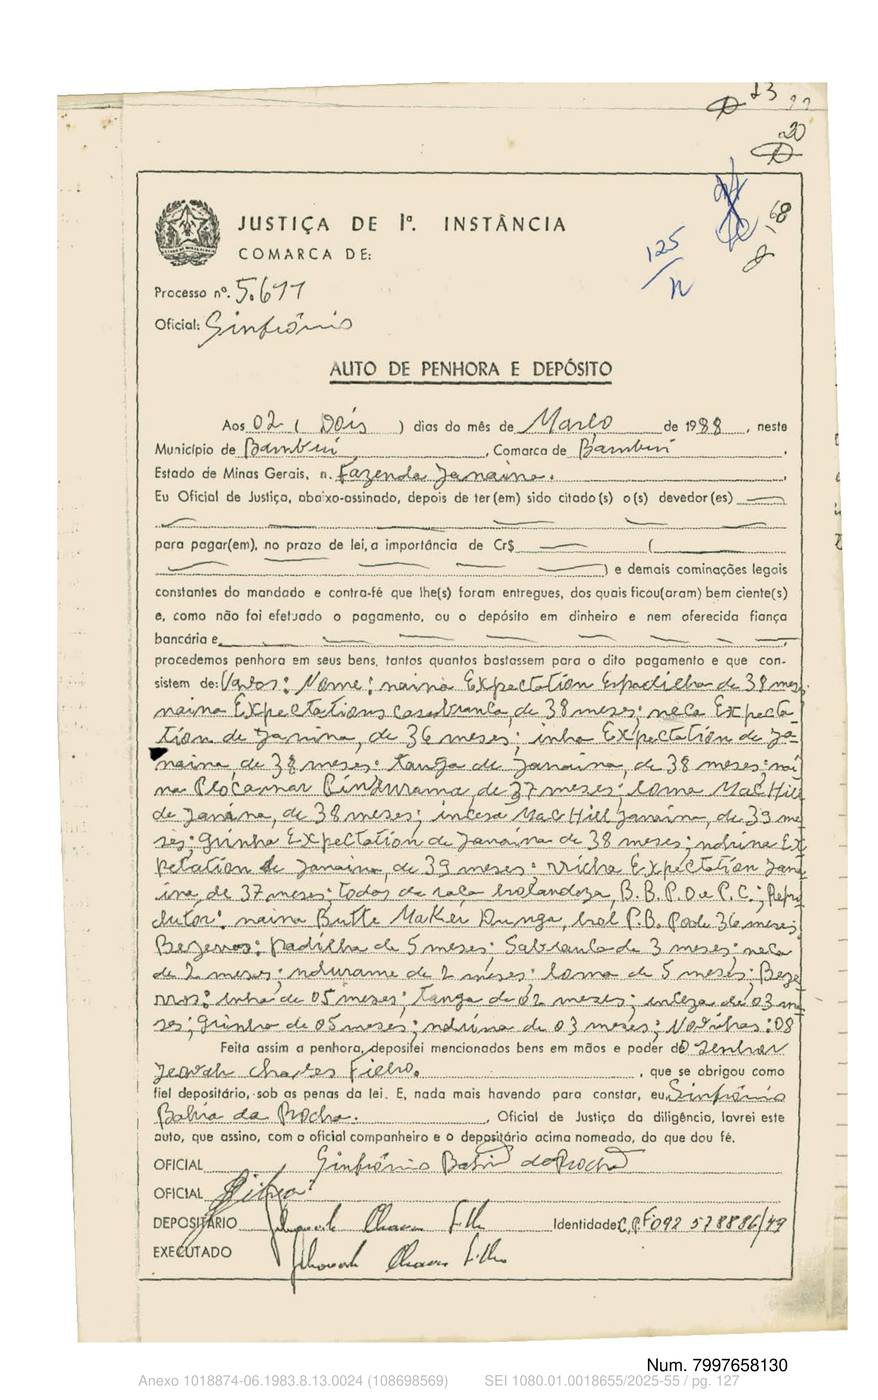 23
20
68
125
JUSTIÇA DE 1ª. INSTÂNCIA
COMARCA DE:
Processo nº. 5.677
Oficial: Sinfrônio
AUTO DE PENHORA E DEPÓSITO
Aos 02 ( Dois ) dias do mês de Março de 1988, neste
Município de Bambuí, Comarca de Bambuí.
Estado de Minas Gerais, n. Fazenda Janaina.
Eu Oficial de Justiça, abaixo-assinado, depois de ter(em) sido citado(s) o(s) devedor(es)
para pagar(em), no prazo de lei, a importância de Cr$ (
) e demais cominações legais
constantes do mandado e contra-fé que lhe(s) foram entregues, dos quais ficou(aram) bem ciente(s)
e, como não foi efetuado o pagamento, ou o depósito em dinheiro e nem oferecida fiança
bancária e,
procedemos penhora em seus bens, tantos quantos bastassem para o dito pagamento e que con-
sistem de: Vacas: Nome: naina Expectation Espadilha de 38 meses
naina Expectations casabranca, de 38 meses; neca Expecta-
tion de Janina, de 36 meses; inha Expectation de Ja-
naina, de 38 meses: tanga de Janaina, de 38 meses; nai
na Plocamar Pindurama, de 37 meses; loma Mac Hill
de Janána, de 38 meses; inceza Mac Hill Janaina, de 39 me
ses; grinha Expectation de Janaina de 38 meses; ndrina Ex
petation de Janaina, de 39 meses: rricha Expectation Jana
ina, de 37 meses; todas da raça holandeza, B.B. P.O e P.C.; Repro
dutor: naina Butte Maker Dunga, hol P.B. Pode 36 meses;
Bezerros: padilha de 5 meses; Sabranca de 3 meses; neca
de 2 meses; ndurame de 2 meses; loma de 5 meses; Beze
rros: inha de 05 meses; tanga de 02 meses; inceza de 03 me
ses; grinha de 05 meses; ndrina de 03 meses; Novinhas: 08
Feita assim a penhora, depositei mencionados bens em mãos e poder do Senhor
Jeovah Chaves Filho., que se obrigou como
fiel depositário, sob as penas da lei. E, nada mais havendo para constar, eu, Sinfrônio
Bahia da Rocha., Oficial de Justiça da diligência, lavrei este
auto, que assino, com o oficial companheiro e o depositário acima nomeado, do que dou fé.
OFICIAL Sinfrônio Bahia da Rocha
OFICIAL
DEPOSITÁRIO Jehovah Chaves Filho Identidade C.P.F 092 578886/49
EXECUTADO Jehovah Chaves Filho
Num. 7997658130
Anexo 1018874-06.1983.8.13.0024 (108698569) SEI 1080.01.0018655/2025-55 / pg. 127